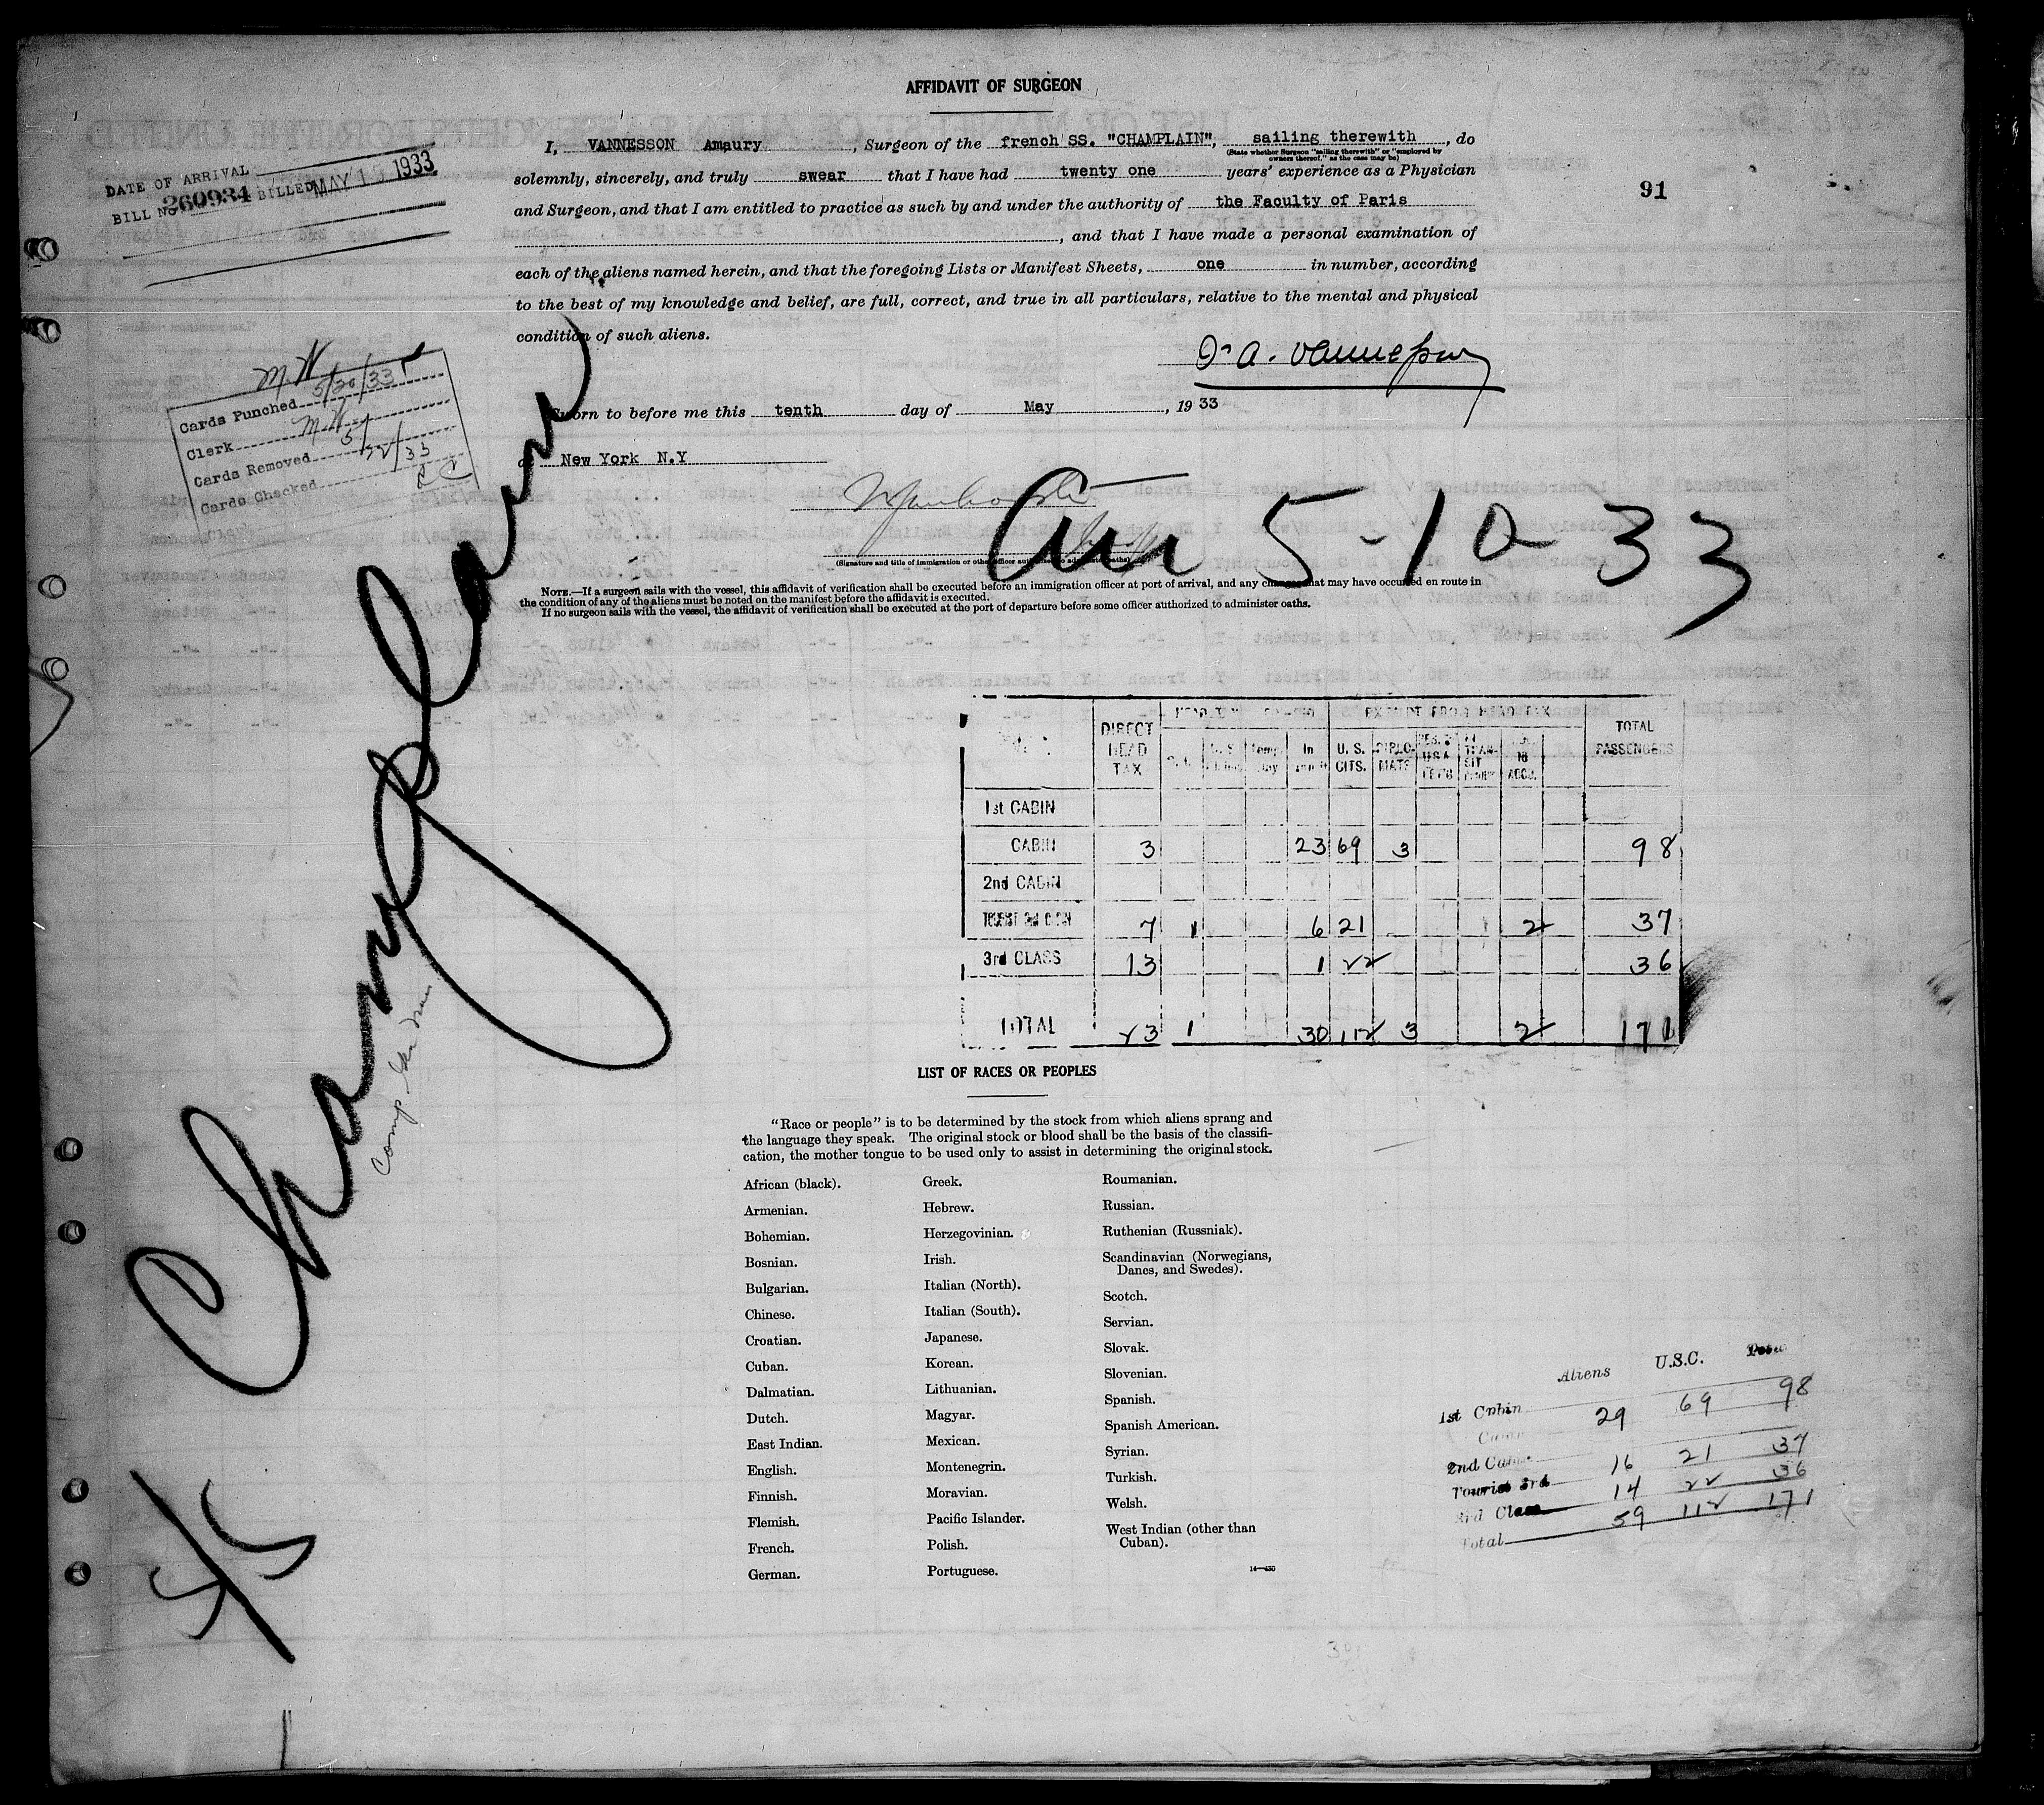 AFFIDAVIT OF SURGEON
I, VANNESSON Amaury, Surgeon of the french SS. "CHAMPLAIN", sailing therewith, do
(State whether Surgeon "sailing therewith" or "employed by
owners thereof," as the case may be)
solemnly, sincerely, and truly swear that I have had twenty one years' experience as a Physician
and Surgeon, and that I am entitled to practice as such by and under the authority of the Faculty of Paris
, and that I have made a personal examination of
each of the aliens named herein, and that the foregoing Lists or Manifest Sheets, one in number, according
to the best of my knowledge and belief, are full, correct, and true in all particulars, relative to the mental and physical
condition of such aliens.
Sworn to before me this tenth day of May, 1933
at New York N.Y
DATE OF ARRIVAL
BILL No 260934 BILLED MAY 1 1933
91
M.W
Cards Punched 5/20/33
Clerk M.W
Cards Removed 5/22/33
Cards Checked
Clerk
Arr 5-10-33
(Signature and title of immigration or other officer authorized to administer oaths)
NOTE.—If a surgeon sails with the vessel, this affidavit of verification shall be executed before an immigration officer at port of arrival, and any changes that may have occurred en route in
the condition of any of the aliens must be noted on the manifest before the affidavit is executed.
If no surgeon sails with the vessel, the affidavit of verification shall be executed at the port of departure before some officer authorized to administer oaths.
Champlain
S/S
DIRECT HEAD TAX U. S. CITS. DIPLOMATS TOTAL PASSENGERS
1st CABIN
CABIN 3 23 69 3 98
2nd CABIN
TOURIST 3rd CABIN 7 1 6 21 2 37
3rd CLASS 13 1 22 36
TOTAL 23 1 30 112 3 2 171
LIST OF RACES OR PEOPLES
"Race or people" is to be determined by the stock from which aliens sprang and
the language they speak. The original stock or blood shall be the basis of the classifi-
cation, the mother tongue to be used only to assist in determining the original stock.
African (black).
Armenian.
Bohemian.
Bosnian.
Bulgarian.
Chinese.
Croatian.
Cuban.
Dalmatian.
Dutch.
East Indian.
English.
Finnish.
Flemish.
French.
German.
Greek.
Hebrew.
Herzegovinian.
Irish.
Italian (North).
Italian (South).
Japanese.
Korean.
Lithuanian.
Magyar.
Mexican.
Montenegrin.
Moravian.
Pacific Islander.
Polish.
Portuguese.
Roumanian.
Russian.
Ruthenian (Russniak).
Scandinavian (Norwegians,
Danes, and Swedes).
Scotch.
Servian.
Slovak.
Slovenian.
Spanish.
Spanish American.
Syrian.
Turkish.
Welsh.
West Indian (other than
Cuban).
14—430
Aliens U.S.C. Total
1st Cabin 29 69 98
Cabin
2nd Cabin
Tourist 3rd 16 21 37
3rd Class 14 22 36
Total 59 112 171